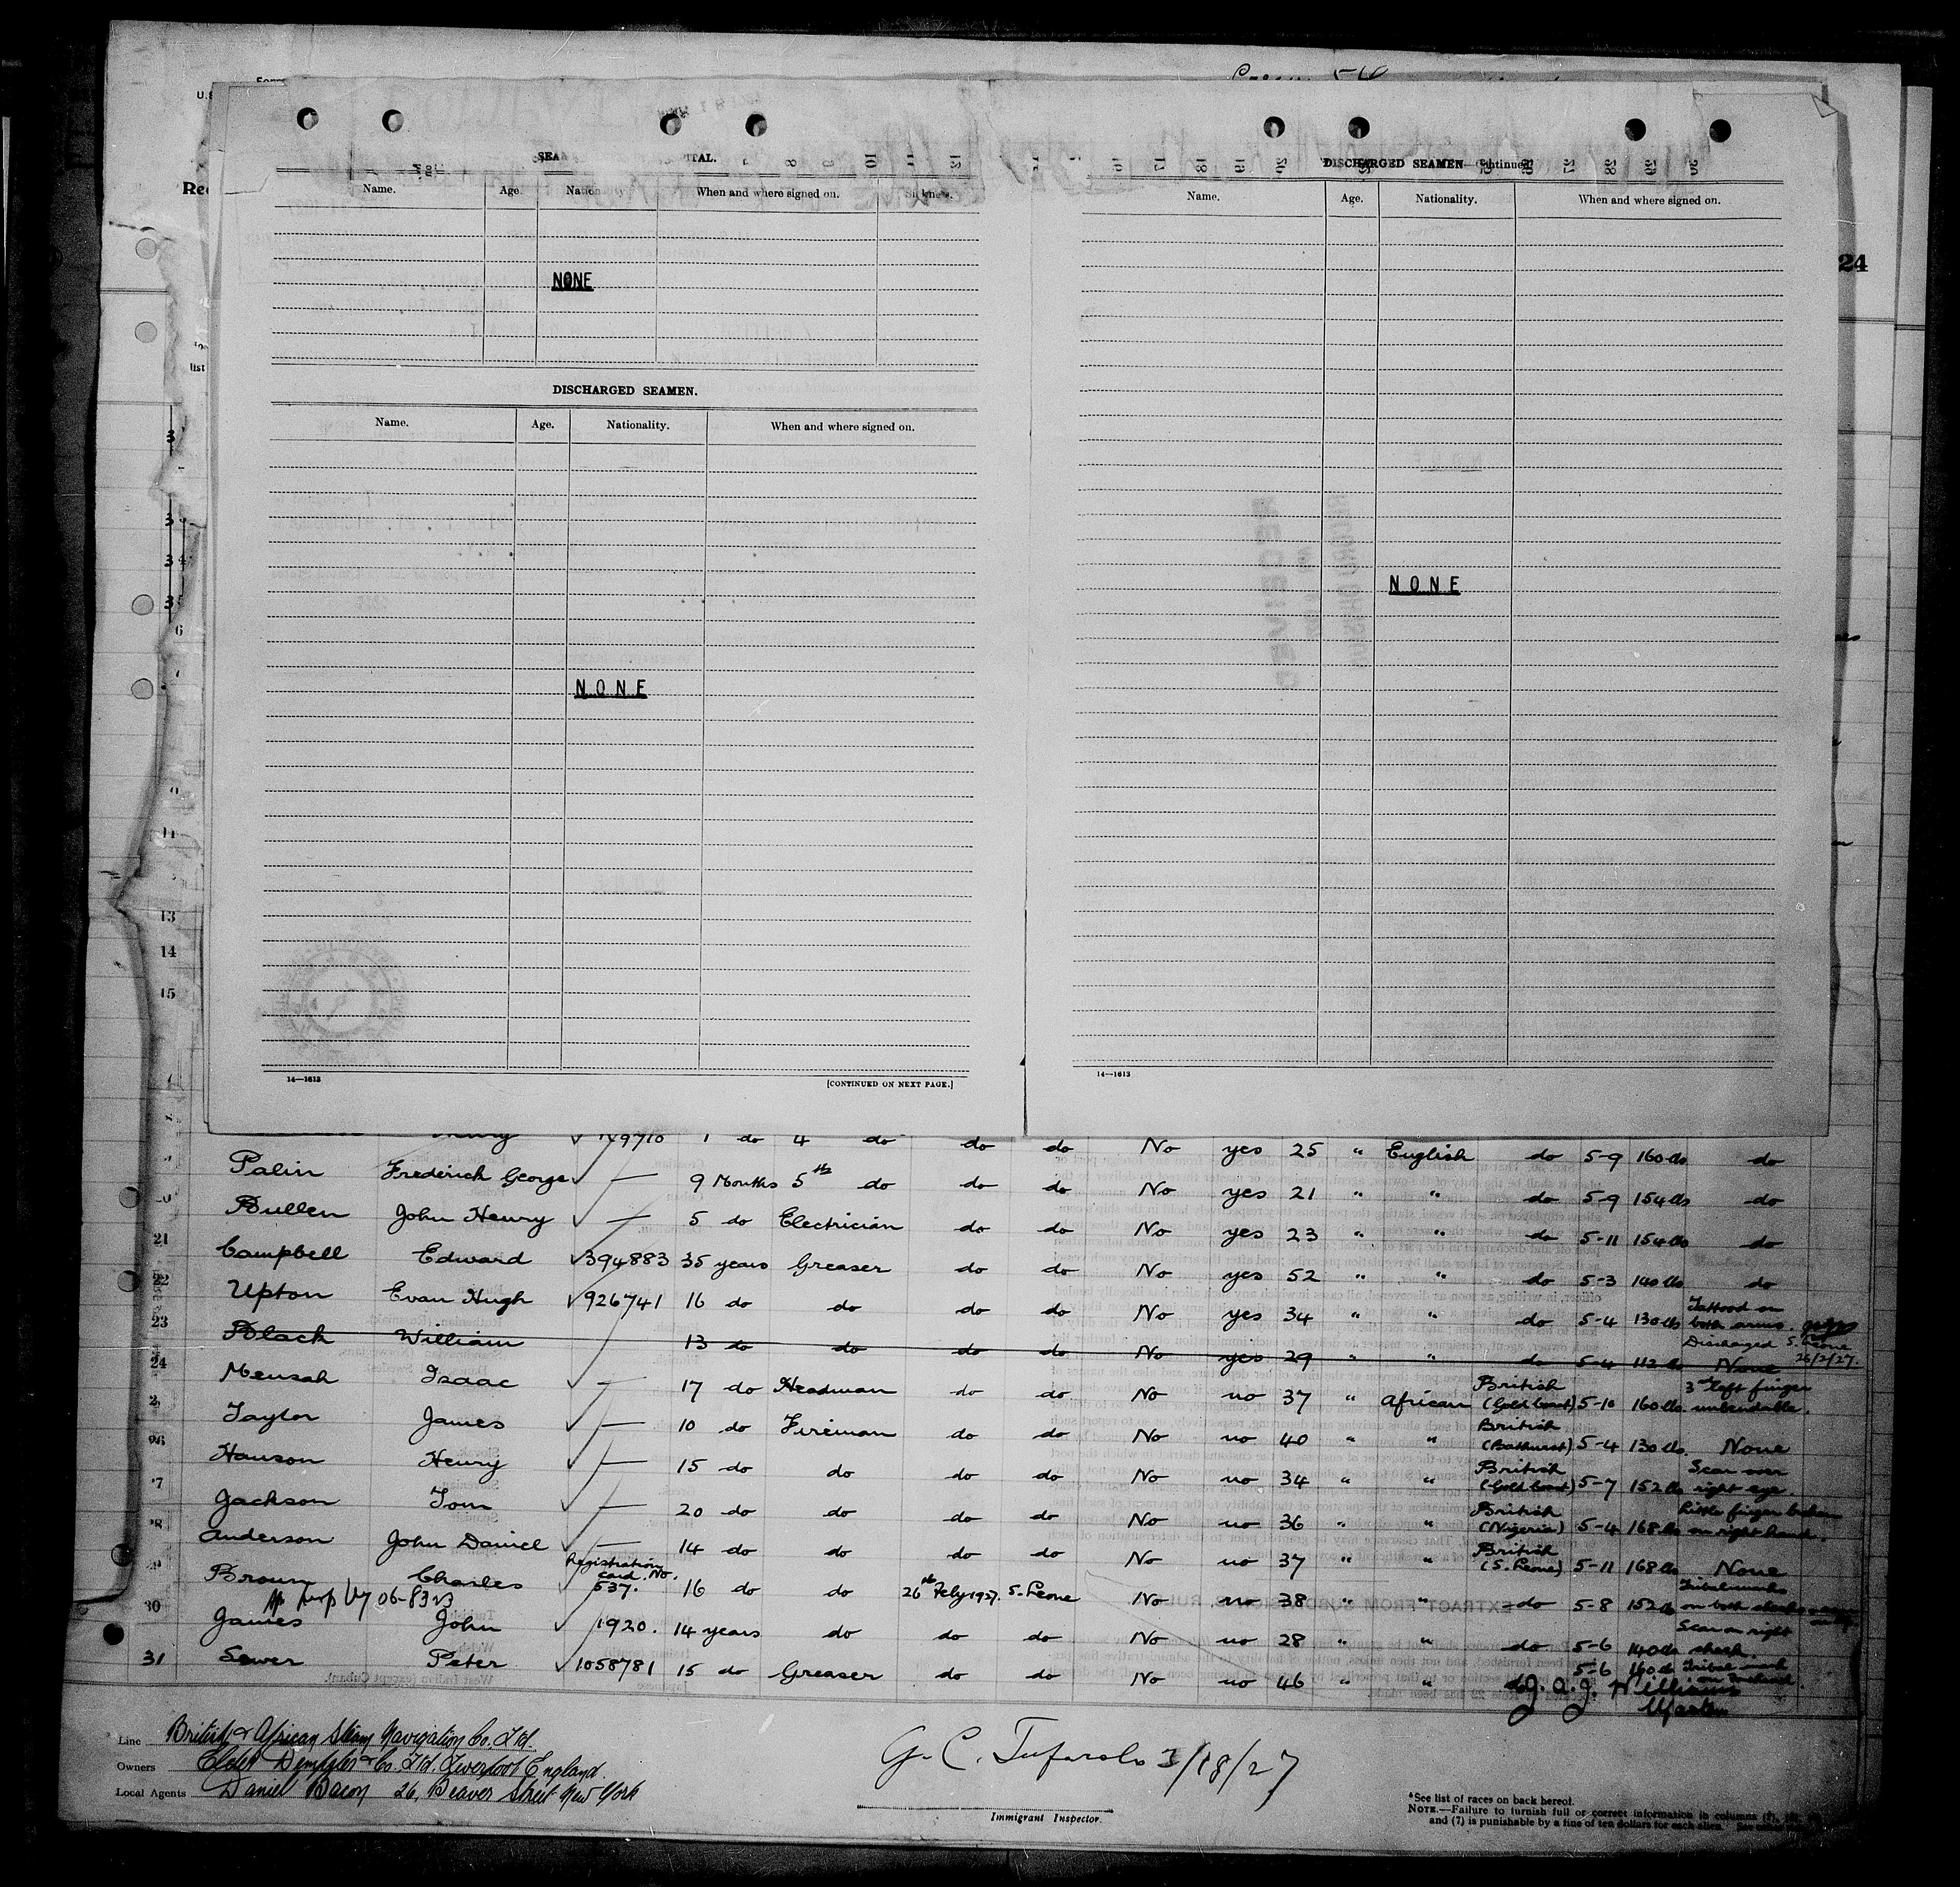 24
SEA PITAL.
Name. Age. Nationality When and where signed on. Sickness.
NONE
DISCHARGED SEAMEN.
Name. Age. Nationality. When and where signed on.
NONE
14—1613 [CONTINUED ON NEXT PAGE.]
DISCHARGED SEAMEN—Continued
Name. Age. Nationality. When and where signed on.
NONE
14—1613
1 do 4 do do do No yes 25 " English do 5-9 160 lbs do
Palin Frederick George ✓ — 9 Months 5th do do do No yes 21 " " do 5-9 154 lbs do
Bullen John Henry ✓ — 5 do Electrician do do No yes 23 " " do 5-11 154 lbs do
21 Campbell Edward ✓ 394883 35 years Greaser do do No yes 52 " " do 5-3 140 lbs do
22 Upton Evan Hugh ✓ 926741 16 do do do do No yes 34 " " do 5-4 130 lbs Tattood on both arms.
23 Black William 13 do do do do No yes 29 " " do 5-4 112 lbs None Discharged S. Leone 26/2/27.
24 Mensah Isaac ✓ — 17 do Headman do do No no 37 " African British (Gold Coast) 5-10 160 lbs. 3rd left finger unbendable.
Taylor James ✓ — 10 do Fireman do do No no 40 " " British (Bathurst) 5-4 130 lbs. None
26 Hanson Henry ✓ — 15 do do do do No no 34 " " British (Gold Coast) 5-7 152 lbs Scar over right eye.
7 Jackson Tom ✓ — 20 do do do do No no 36 " " British (Nigeria) 5-4 168 lbs Little finger broken on right hand.
28 Anderson John Daniel ✓ — 14 do do do do No no 37 " " British (S. Leone) 5-11 168 lbs None
29 Brown Charles ✓ Registration card. No. 537. 16 do do 26th Feby 1927. S. Leone No no 38 " " do 5-8 152 lbs Tribal marks on both cheeks
30 James John ✓ 1920. 14 years do do do No no 28 " " do 5-6 140 lbs Scar on right cheek.
31 Sawer Peter ✓ 1058781 15 do Greaser do do No no 46 " " do 5-6 160 lbs Tribal mark on forehead.
J. A. J. Williams
Master
Line British & African Steam Navigation Co. Ltd.
Owners Elder Dempster & Co. Ltd. Liverpool England.
Local Agents Daniel Bacon 26, Beaver Street New York
3/18/27
Immigrant Inspector.
*See list of races on back hereof.
NOTE.—Failure to furnish full or correct information in columns
and (7) is punishable by a fine of ten dollars for each alien.